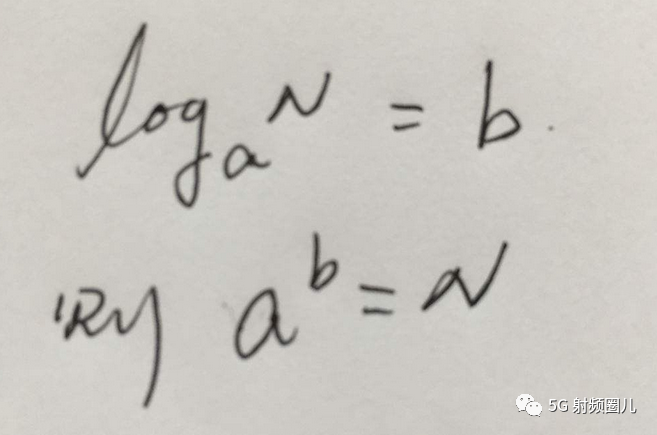 logₐN = b.
则 aᵇ = N
5G 射频圈儿